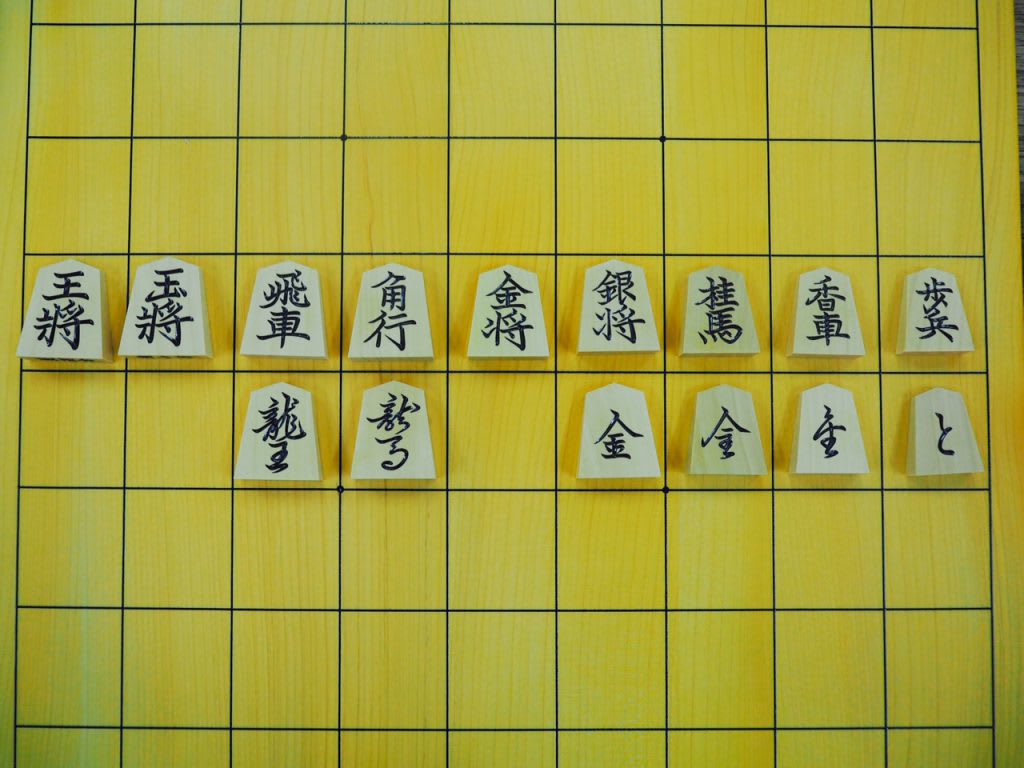 王將 玉將 飛車 角行 金将 銀将 桂馬 香車 歩兵
龍王 龍馬 全 圭 杏 と